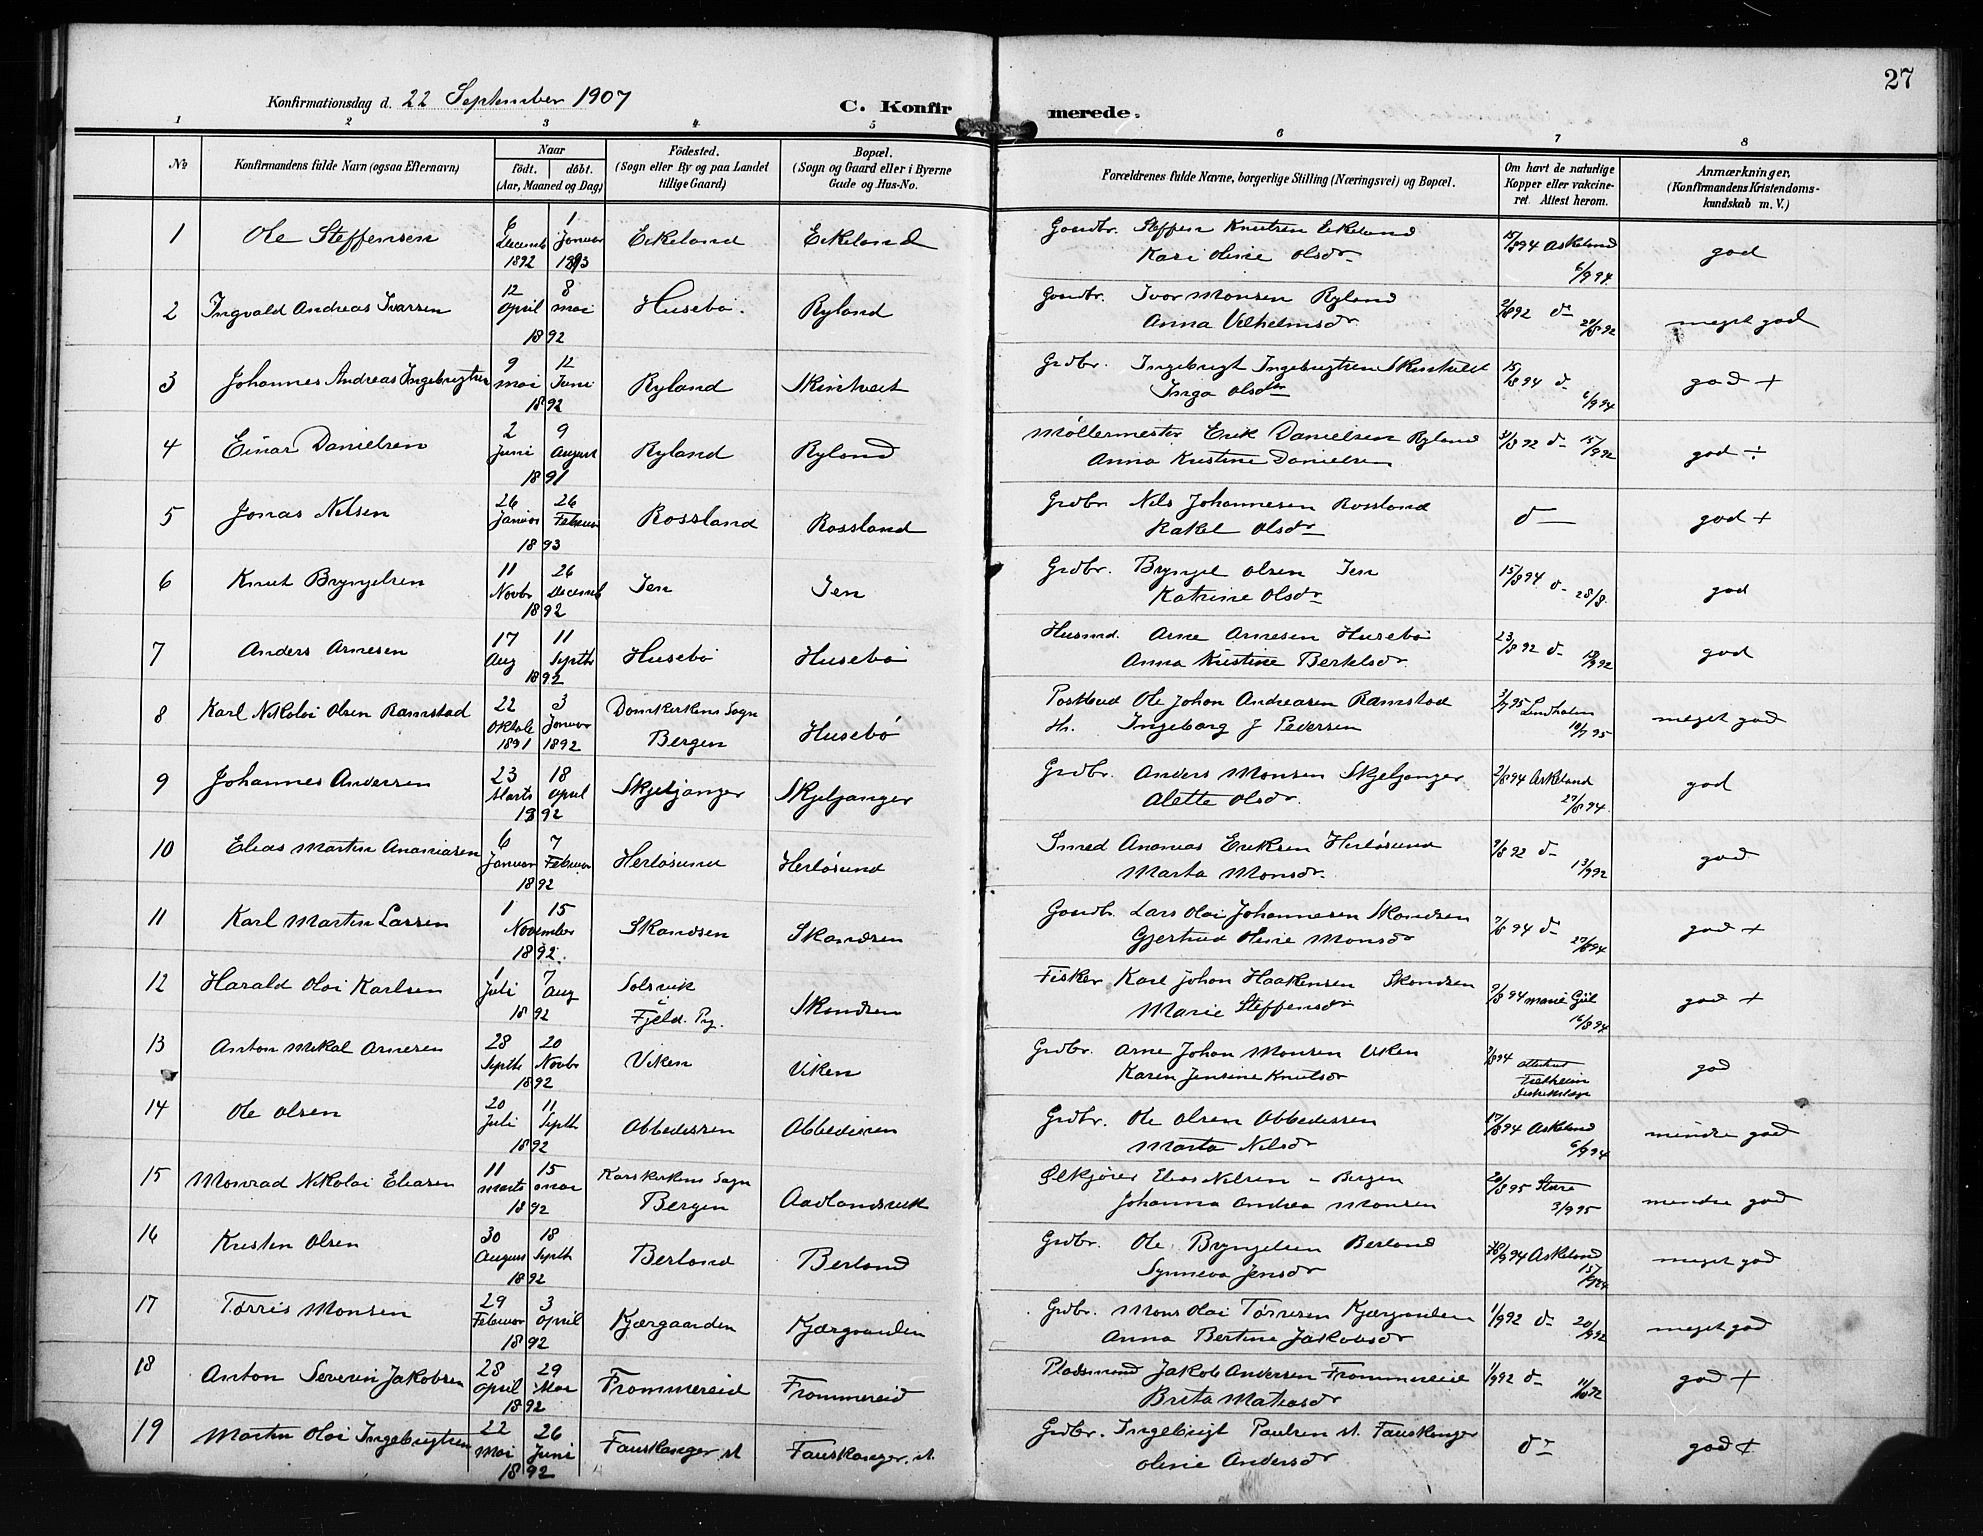 27
Konfirmationsdag d. 22 September 1907
C. Konfirmerede.
1 2 3 4 5 6 7 8
No
Konfirmandens fulde Navn (ogsaa Efternavn)
Naar
födt. döbt.
(Aar, Maaned og Dag)
Födested.
(Sogn eller By og paa Landet
tillige Gaard)
Bopæl.
(Sogn og Gaard eller i Byerne
Gade og Hus-No.
Forældrenes fulde Navne, borgerlige Stilling (Næringsvei) og Bopæl.
Om havt de naturlige
Kopper eller vakcine-
ret. Attest herom.
Anmærkninger.
(Konfirmandens Kristendoms-
kundskab m. V.)
1 Ole Steffensen 6 Decemb 1892 1 Januar 1893 Eikeland Eikeland Gaardbr. Steffen Knutsen Eikeland
Kari Oline Olsdr 15/8 94 Askeland 6/9 94 god
2 Ingvald Andreas Ivarsen 12 April 8 mai 1892 Husebö. Ryland Gaardbr. Ivar Monsen Ryland
Anna Vilhelmsdr. 2/8 92 do 29/8 92 meget god
3 Johannes Andreas Ingebrigtsen 9 mai 12 Juni 1892 Ryland Skintveit Grdbr. Ingebrigt Ingebrigtsen Skintveit
Inga Olsdtr 15/8 94 do 6/9 94 god +
4 Einar Danielsen 2 Juni 9 August 1891 Ryland Ryland Møllermester Erik Danielsen Ryland
Anna Kristine Danielsen 31/8 92 do 15/9 92 god ÷
5 Jonas Nilsen 26 Januar 26 Februar 1893 Rossland Rossland Grdbr. Nils Johannesen Rossland
Rakel Olsdr do god +
6 Knut Bryngelsen 11 Novbr 26 Decemb 1892 Jen Jen Grdbr. Bryngel Olsen Jen
Katrine Olsdr 15/8 94 do 28/8. god
7 Anders Arnesen 17 Aug 11 Septb 1892 Husebö Husebö Husmd. Arne Arnesen Husebö
Anna Kristine Bertelsdr. 23/8 92 do god
8 Karl Nikolai Olsen Ramstad 22 Oktob 1891 3 Januar 1892 Domkirkens Sogn
Bergen Husebö Postbud Ole Johan Andreasen Ramstad
H. Ingeborg J Pedersen 3/7 95 Lindholm 10/7 95 meget god
9 Johannes Andersen 23 Marts 18 April 1892 Skjeljanger Skjeljanger Grdbr. Anders Monsen Skjeljanger
Alette Olsdr. 2/8 94 Askeland 27/8 94. god
10 Elias Martin Ananiasen 6 Januar 7 Februar 1892 Herløsund Herløsund Smed Ananias Eriksen Herløsund
Marta Monsdr. 9/8 92 do 13/9 92 god
11 Karl Martin Larsen 1 15 November 1892. Skandsen Skandsen Gaardbr. Lars Olai Johannesen Skandsen
Gjertrud Oline Monsdr 7/8 94 do 27/8 94 god +
12 Harald Olai Karlsen 1 Juli 7 Aug 1892 Solsvik
i
Fjeld. Pg. Skandsen Fisker Karl Johan Haakensen Skandsen
Marie Steffensdr 9/8 94 Marie 16/8 94 god +
13 Anton Mikal Arnesen 28 Septb 20 Novbr 1892 Viken Viken Grdbr. Arne Johan Monsen Viken
Karen Jensine Knutsdr 7/8 94 god
14 Ole Olsen 20 Juli 11 Septb 1892 Abbedissen Abbedissen Grdbr. Ole Olsen Abbedissen
Marta Nilsdr 17/8 94 Askeland 6/9 94 mindre god
15 Monrad Nikolai Eliasen 11 Marts 15 mai 1892 Korskirkens Sogn
Bergen Aadlandsvik Ølkjører Elias Nilsen - Bergen
Johanna Andrea Monsen 20/8 95 3/9 95 mindre god
16 Kristen Olsen 30 August 18 Septb 1892 Berland Berland Grdbr. Ole Bryngelsen Berland
Synneva Jensdr Askeland 15/9 94 meget god
17 Tørris Monsen 29 Februar 3 April 1892 Kjærgaarden Kjærgaarden Grdbr. Mons Olai Tørrisen Kjærgaarden
Anna Bertine Jakobsdr 1/9 92 do 20/9 92 meget god
18 Anton Severin Jakobsen 28 April 29 Mai 1892 Frommereid Frommereid Pladsmand Jakob Andersen Frommereid
Brita Matiasdr 1/9 92 do god +
19 Martin Olai Ingebrigtsen 22 Mai 26 Juni 1892 Fauskanger st Fauskanger, st. Grdbr. Ingebrigt Paulsen st. Fauskanger
Oline Andersdr do god +